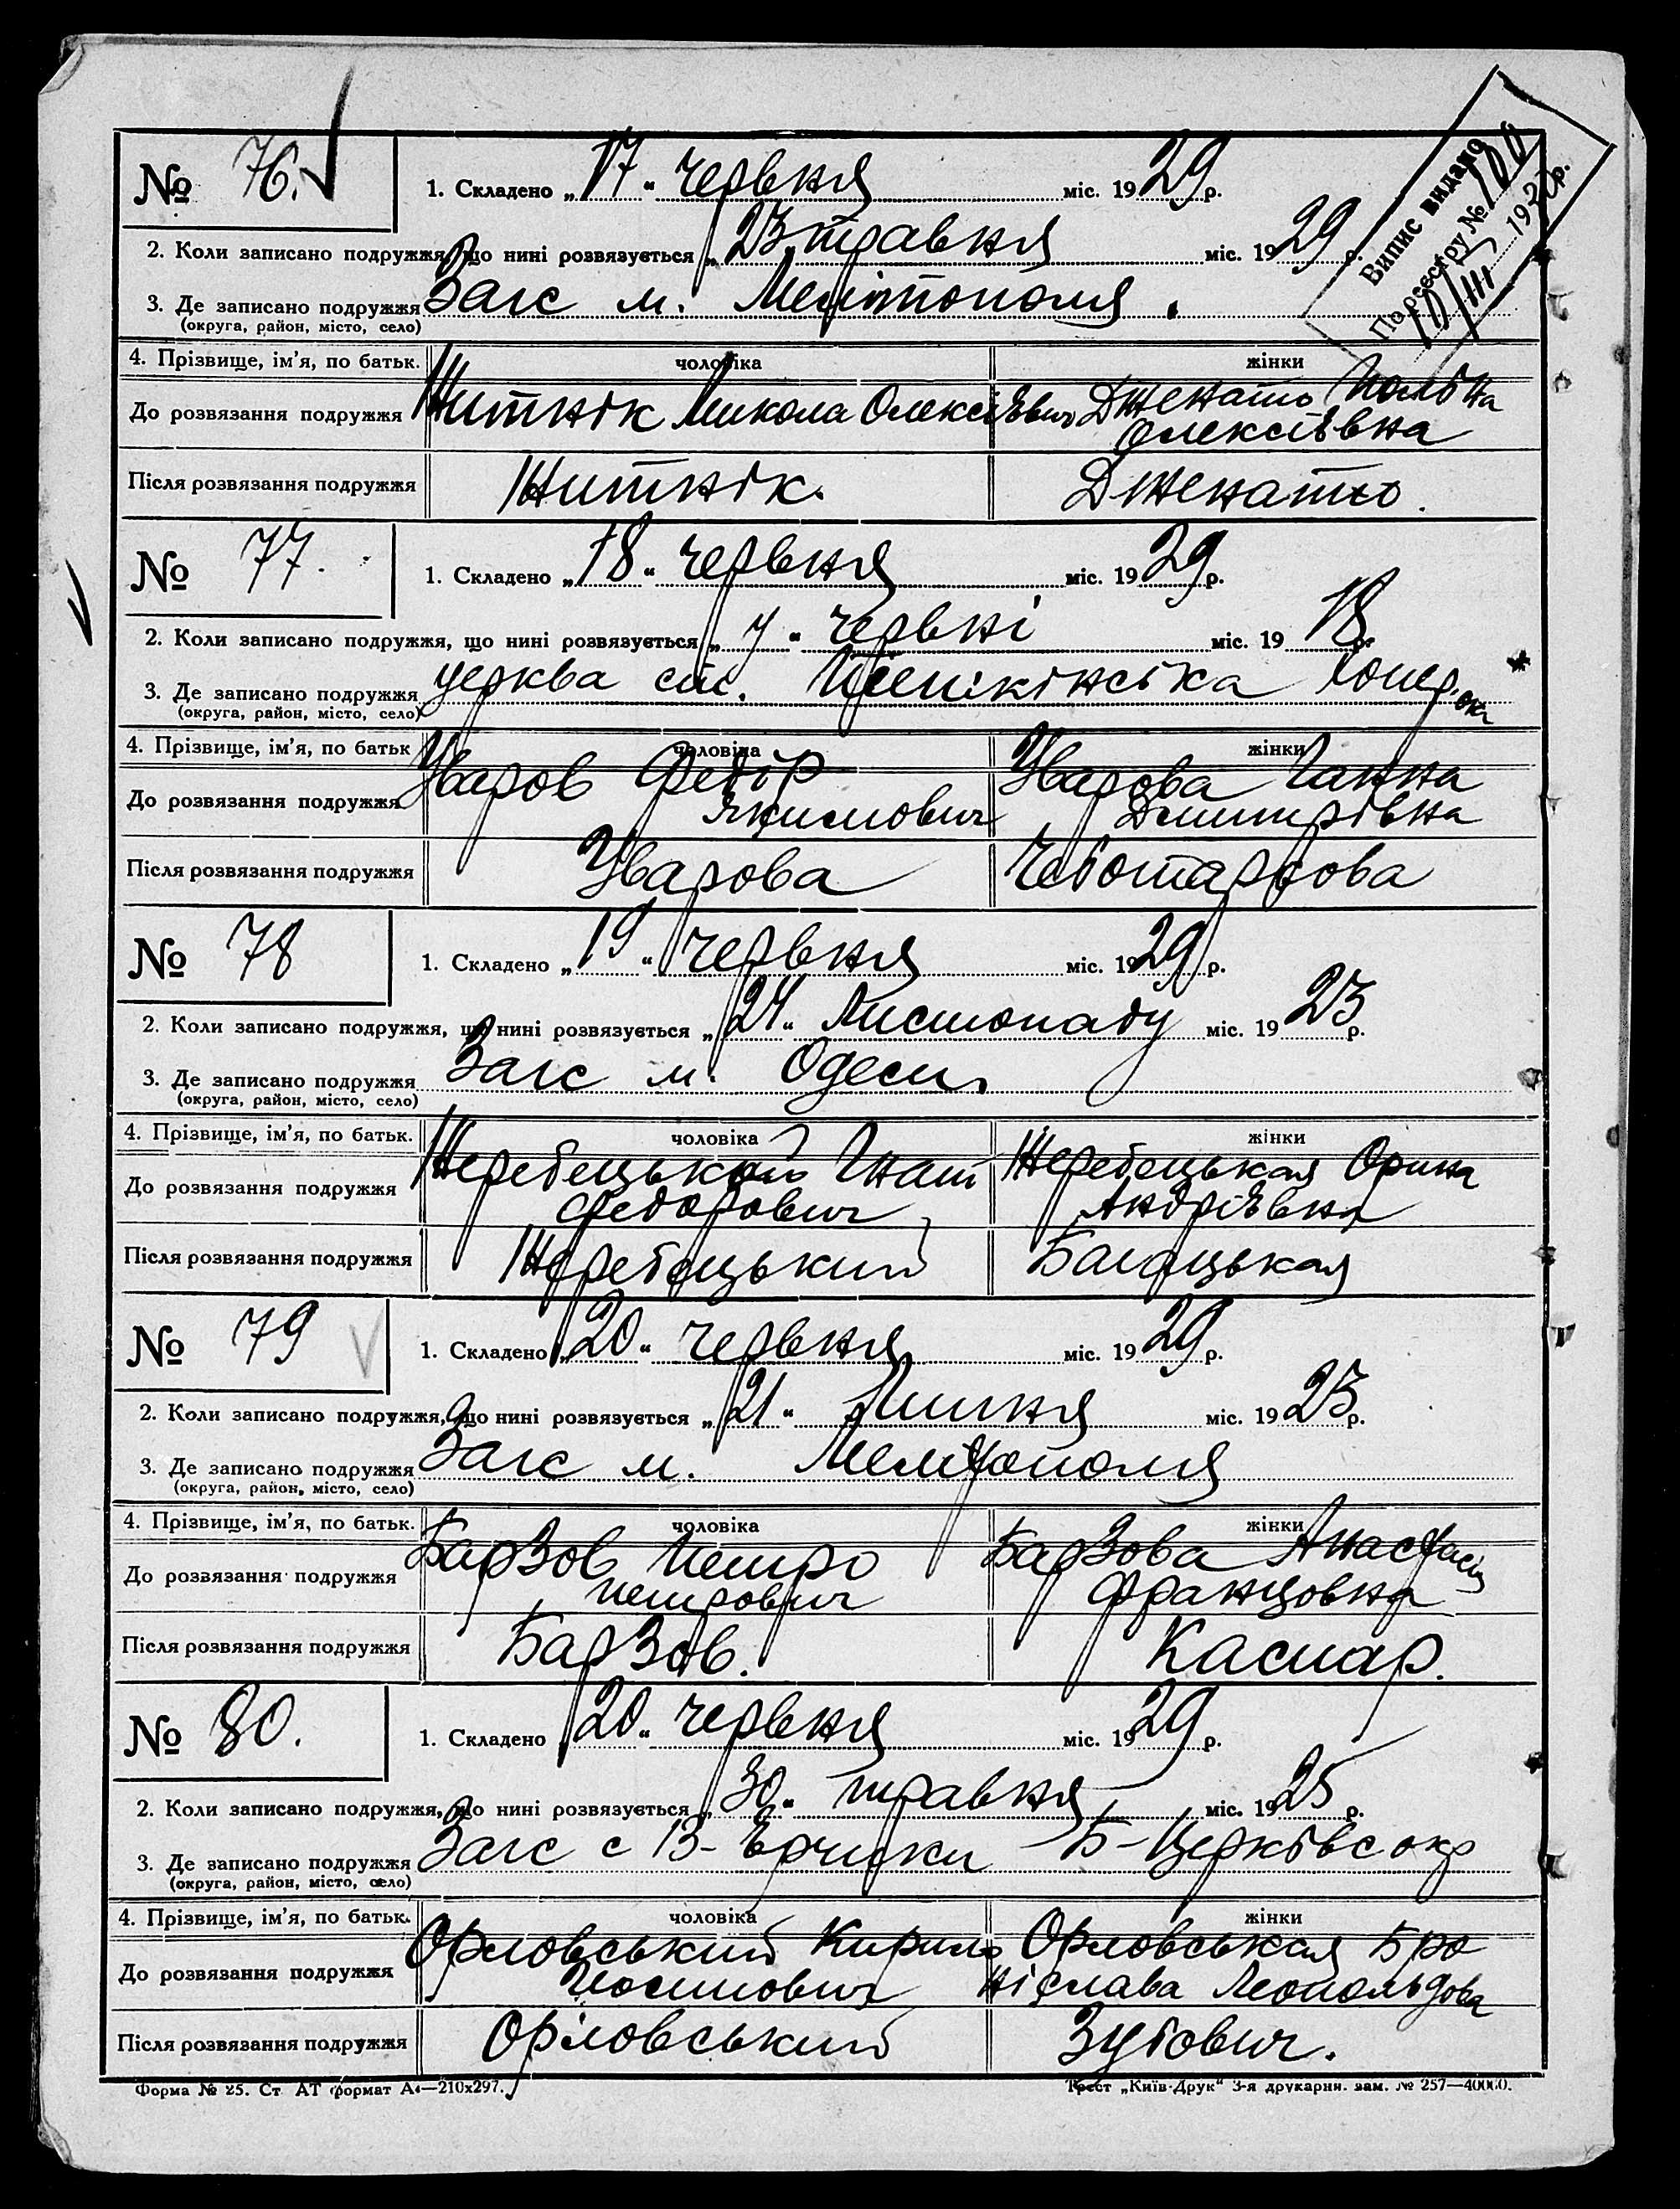 Випис видано
По реєстру № 100
10/III 193 р.
№ 76.
1. Складено „17“ червня міс. 1929 р.
2. Коли записано подружжя, що нині розвязується „23“ травня міс. 1929 р.
3. Де записано подружжя Загс м. Мелітополя.
(округа, район, місто, село)
4. Прізвище, ім'я, по батьк. чоловіка жінки
До розвязання подружжя Житнік Микола Олексієвич Дженато Поліна
Олексієвна
Після розвязання подружжя Житнік. Дженато.
№ 77.
1. Складено „18“ червня міс. 1929 р.
2. Коли записано подружжя, що нині розвязується „у“ червні міс. 1918 р.
3. Де записано подружжя церква окр
(округа, район, місто, село)
4. Прізвище, ім'я, по батьк чоловіка жінки
До розвязання подружжя Уваров Федір Уварова Ганна
Якимович Дмитрівна
Після розвязання подружжя Уварова Чеботарьова
№ 78
1. Складено „19“ червня міс. 1929 р.
2. Коли записано подружжя, що нині розвязується „24“ Листопаду міс. 1923 р.
3. Де записано подружжя Загс м. Одеси.
(округа, район, місто, село)
4. Прізвище, ім'я, по батьк. чоловіка жінки
До розвязання подружжя Жеребецький Гнат Жеребецькая Орина
Федорович Андрієвна
Після розвязання подружжя Жеребецький Багацькая
№ 79
1. Складено „20“ червня міс. 1929 р.
2. Коли записано подружжя, що нині розвязується „21“ Липня міс. 1923 р.
3. Де записано подружжя Загс м. Мелітополя
(округа, район, місто, село)
4. Прізвище, ім'я, по батьк. чоловіка жінки
До розвязання подружжя Барзов Петро Барзова Анастасія
Петрович Францовна
Після розвязання подружжя Барзов. Каспар.
№ 80.
1. Складено „20“ червня міс. 1929 р.
2. Коли записано подружжя, що нині розвязується „30“ травня міс. 1925 р.
3. Де записано подружжя Загс с В- Єрчики Б-Церківс окр
(округа, район, місто, село)
4. Прізвище, ім'я, по батьк. чоловіка жінки
До розвязання подружжя Орловський Кирило Орловськая Бро
Йосипович ніслава Леопольдова
Після розвязання подружжя Орловський Зутович.
Форма № 25. Ст АТ формат А4—210x297. Трест „Київ-Друк“ 3-я друкарня. зам. № 257—40000.